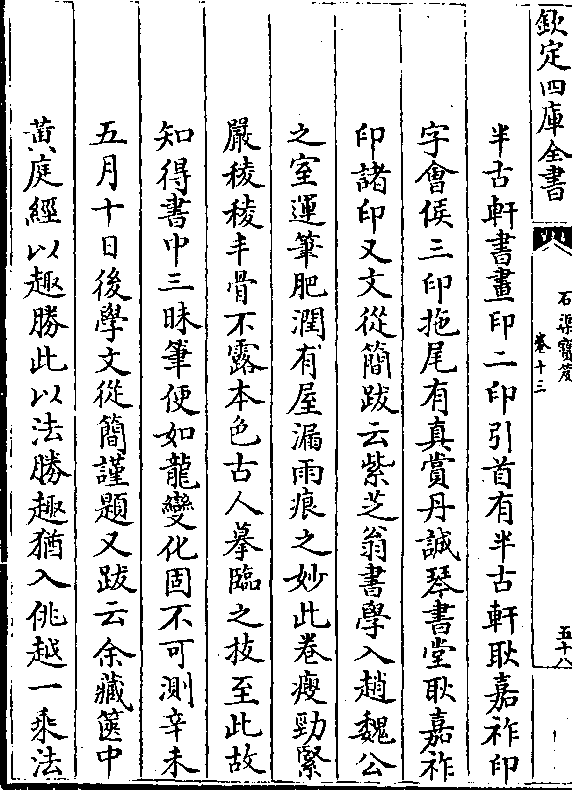 欽定四庫全書
石渠寳笈
卷十三
五十八
半古軒書畫印二印引首有半古軒耿嘉祚印
字會侯三印拖尾有真賞丹誠琴書堂耿嘉祚
印諸印又文從簡跋云紫芝翁書學入趙魏公
之室運筆肥潤有屋漏雨痕之妙此卷瘦勁緊
嚴稜稜丰骨不露本色古人摹臨之技至此故
知得書中三昧筆便如龍變化固不可測辛未
五月十日後學文從簡謹題又跋云余藏篋中
黄庭經以趣勝此以法勝趣猶入佻越一乘法